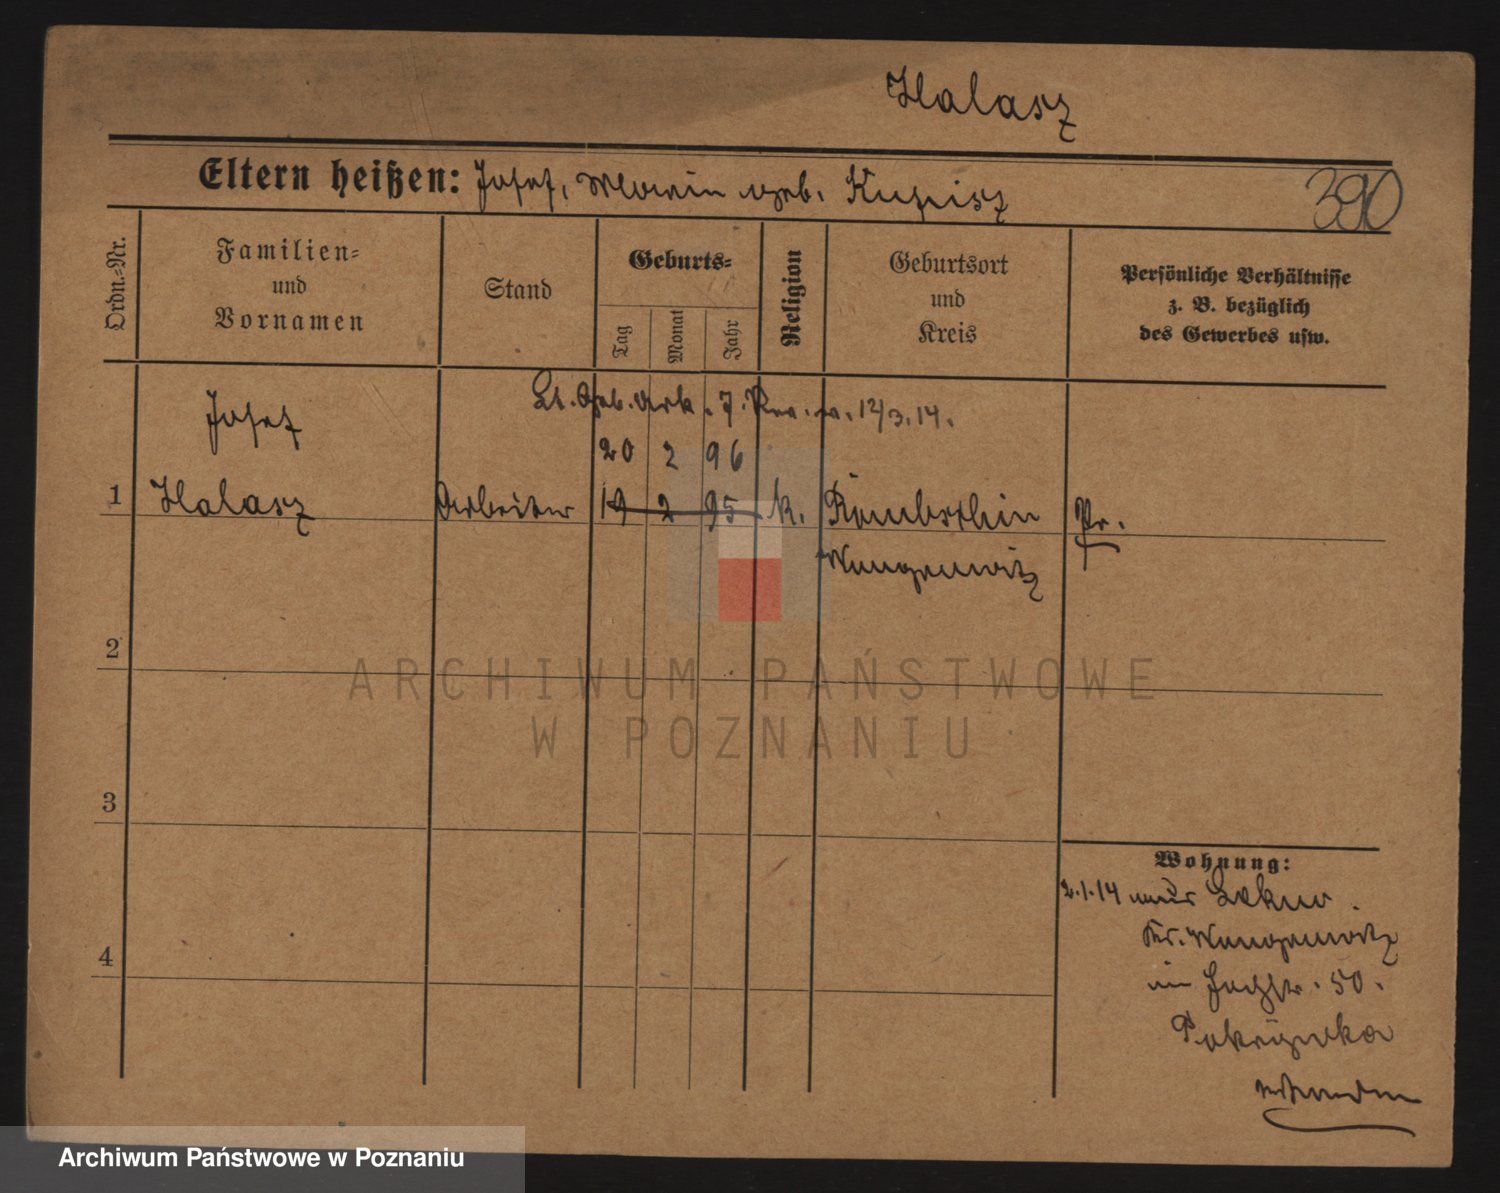 Halasz
Eltern heißen: Josef, Maria geb. Kupisz
390
Ordn.-Nr.
Familien-
und
Vornamen
Stand
Geburts-
Tag
Monat
Jahr
Religion
Geburtsort
und
Kreis
Persönliche Verhältnisse
z. B. bezüglich
des Gewerbes usw.
Lt. Geb. Urk. 7. Rev. v. 12/3.14.
Josef
20 2 96
1 Halasz Arbeiter 19 2 95 k. Rombschin Pr.
Wongrowitz
2
ARCHIWUM PAŃSTWOWE
W POZNANIU
3
Wohnung:
2.1.14
Kr. Wongrowitz
4
50.
Archiwum Państwowe w Poznaniu